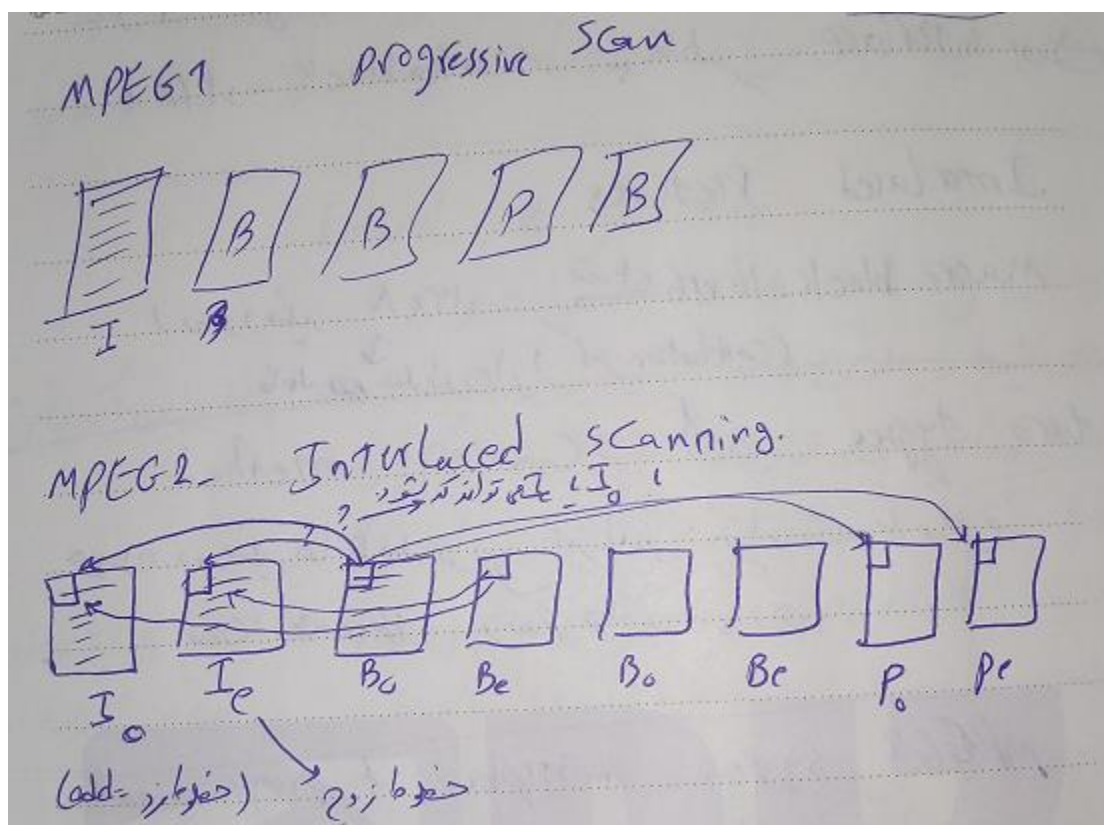 MPEG1 progressive Scan
B B P B
I B
MPEG2- Interlaced scanning.
? ? I₀
I₀ Ie Bo Be Bo Be P₀ Pe
(odd = خطوط فرد) خطوط زوج